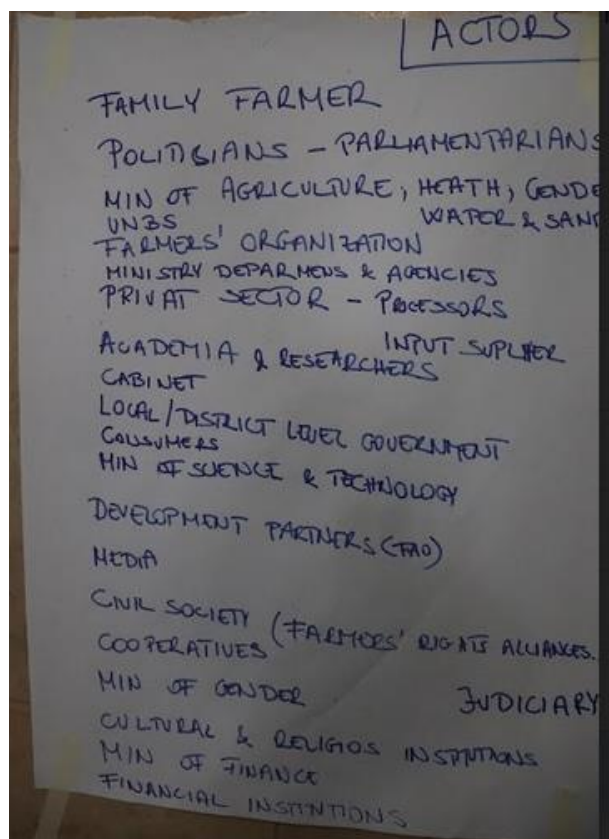 ACTORS
FAMILY FARMER
POLITICIANS - PARLIAMENTARIANS
MIN OF AGRICULTURE, HEATH, GENDE
UNBS WATER & SANI
FARMERS' ORGANIZATION
MINISTRY DEPARMENS & AGENCIES
PRIVAT SECTOR - PROCESSORS
INPUT SUPLIER
ACADEMIA & RESEARCHERS
CABINET
LOCAL/DISTRICT LEVEL GOVERNMENT
CONSUMERS
MIN OF SCIENCE & TECHNOLOGY
DEVELOPMENT PARTNERS (FAO)
MEDIA
CIVIL SOCIETY (FARMERS' RIGHTS ALLIANCES.
COOPERATIVES
MIN OF GENDER JUDICIARY
CULTURAL & RELIGIOS INSTITUTIONS
MIN OF FINANCE
FINANCIAL INSTITUTIONS